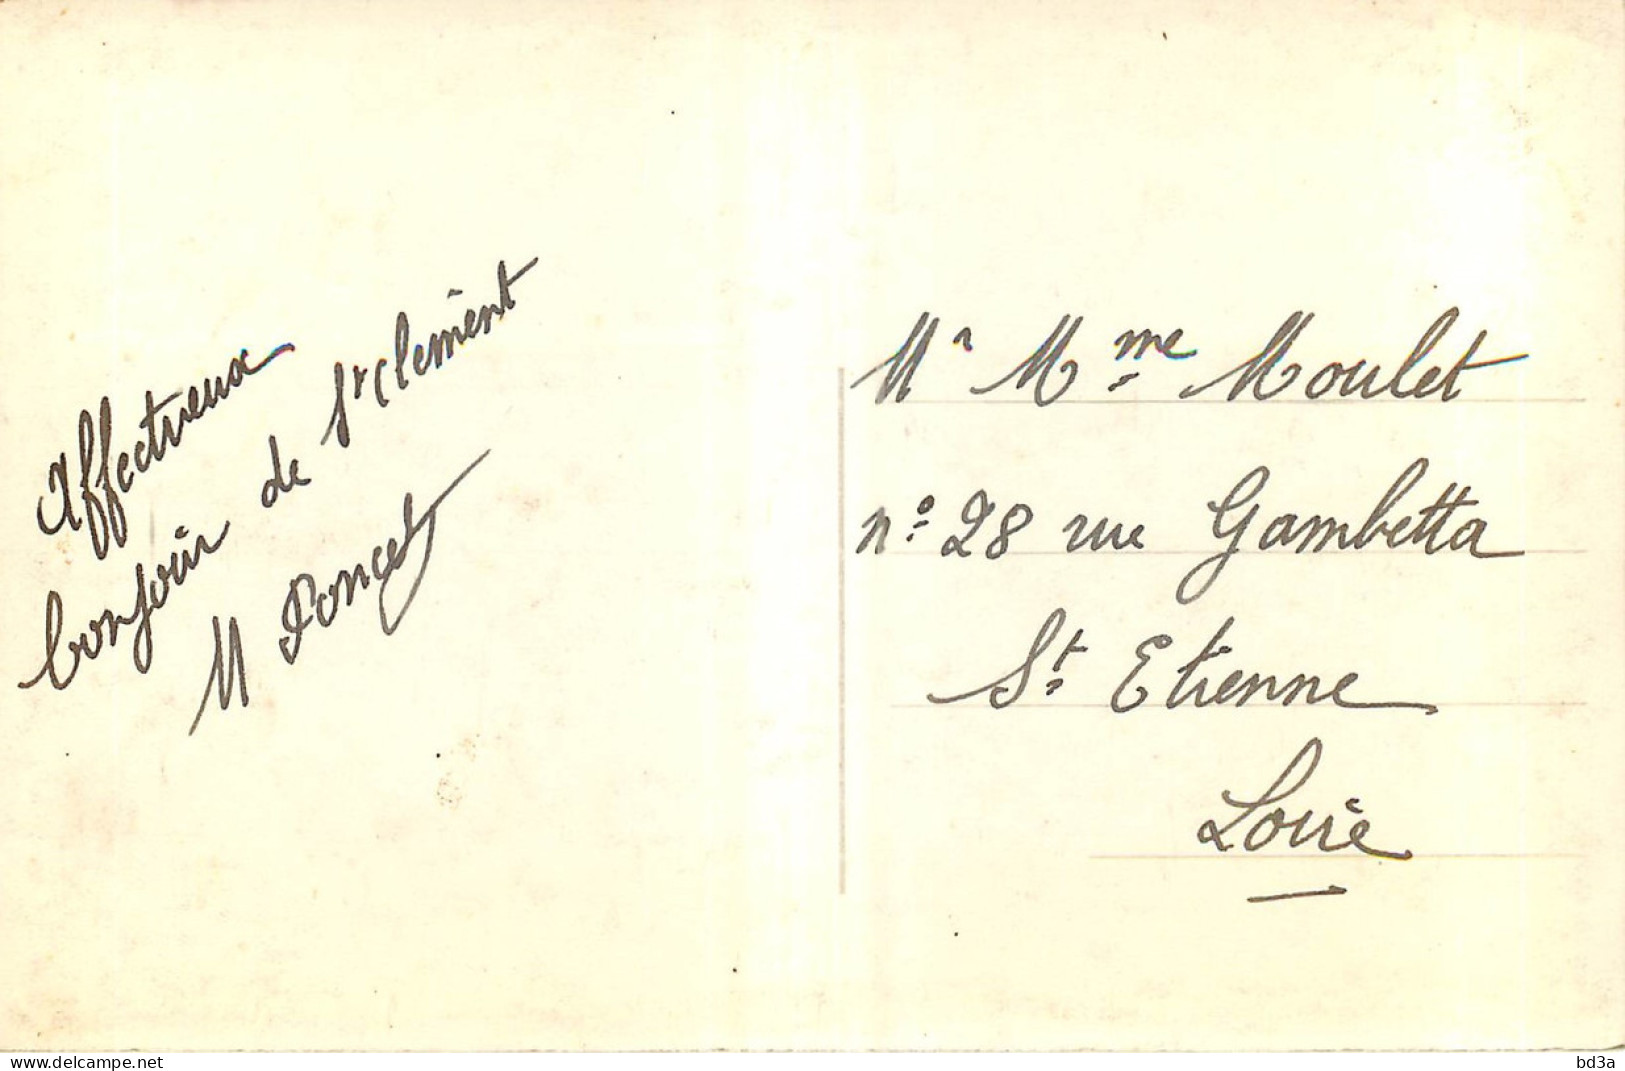 Affectueux
bonjour de St Clement
M Poncet
Mr Mme Moulet
n° 28 rue Gambetta
St Etienne
Loire
www.delcampe.net
bd3a